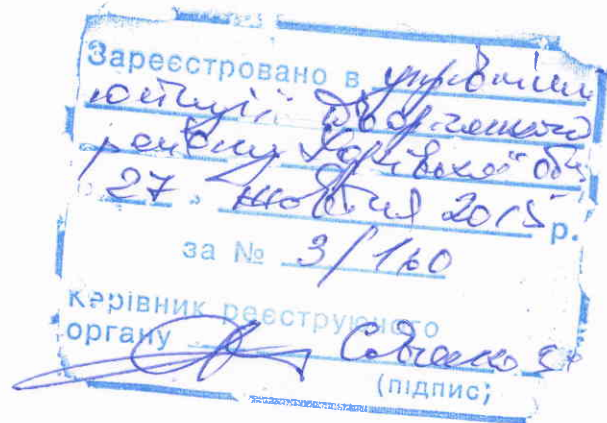 Зареєстровано в управлінні
юстиції Дворічанського
району Харківської обл
"27" жовтня 2015 р.
за № 3/160
Керівник реєструючого
органу
(підпис)